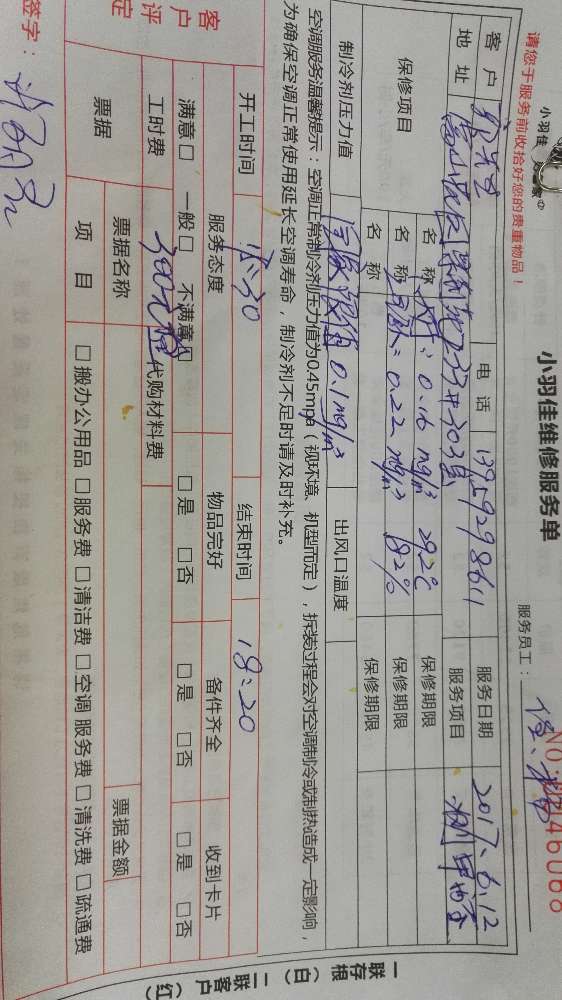 小羽佳
小羽佳维修服务单
请您于服务前收拾好您的贵重物品！
服务员工：
客户
电话 13959298611
服务日期 2017.6.12
地址
33#303室
服务项目
保修项目
名称 0.16 mg/m³ 29.2℃
保修期限
名称 0.22 mg/m³ 82%
保修期限
名称
保修期限
制冷剂压力值 0.1mg/m³
出风口温度
空调服务温馨提示：空调正常制冷剂压力值为0.45mpa（视环境、机型而定），拆装过程会对空调制冷或制热造成一定影响，
为确保空调正常使用延长空调寿命，制冷剂不足时请及时补充。
开工时间
结束时间 18:20
客户评定
服务态度 物品完好 备件齐全 收到卡片
满意□ 一般□ 不满意□ □是 □否 □是 □否 □是 □否
工时费 300元
代购材料费
票据
票据名称
票据金额
项目 □搬办公用品 □服务费 □清洁费 □空调服务费 □清洗费 □疏通费
签字：
一联存根（白） 二联客户（红）